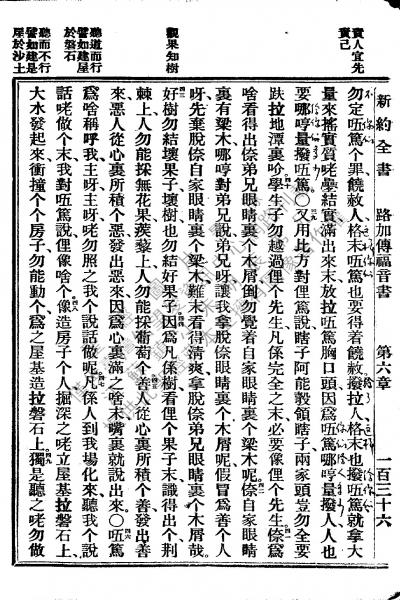 新約全書　路加傳福音書　第六章　一百三十六
責人宜先責己
觀果知樹
聽道而行譬如建屋於磐石
聽而不行譬如建屋於沙土
勿定㕶篤个罪饒赦人格末㕶篤也要得着饒赦撥拉人格末也撥㕶篤就拿大
量來搖實質咾壘結實滿出來末放拉㕶篤胸口頭因爲㕶篤哪哼量撥人人也
要哪哼量撥㕶篤○又用比方對俚篤說瞎子阿能彀領瞎子兩家頭豈勿全要
跌拉地潭裏吤學生子勿越過俚个先生凡係完全之末必要像俚个先生爲
啥看得出倷弟兄眼睛裏个木屑倒勿覺着自家眼睛裏个梁木呢倷自家眼睛
裏有梁木哪哼對弟兄說弟兄呀讓我拿脫倷眼睛裏个木屑呢假冒爲善个人
呀先棄脫倷自家眼睛裏个梁木難末看得清爽拿脫倷弟兄眼睛裏个木屑哉
好樹勿結壞果子壞樹也勿結好果子因爲凡係樹看俚个果子末識得出个荆
棘上人勿能採無花果蒺藜上人勿能採葡萄个善人從心裏所積个善發出善
來惡人從心裏所積个惡發出惡來因爲心裏滿之啥末嘴裏就說出來○㕶篤
爲啥稱呼我主呀主呀咾勿照之我个說話做呢凡係人到我塲化來聽我个說
話咾做个末我對㕶篤說俚像啥个像造房子个人掘深之咾立屋基拉磐石上
大水發起來衝撞个个房子勿能動个爲之屋基造拉磐石上獨是聽之咾勿做